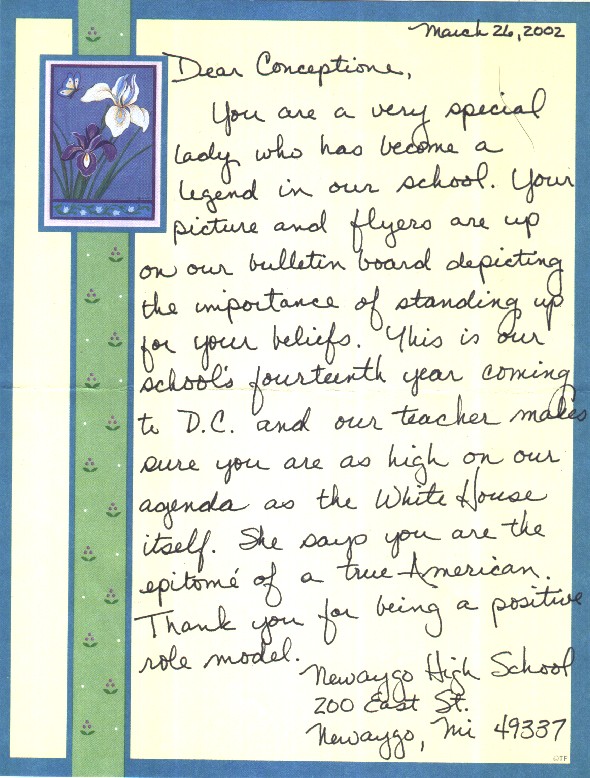 March 26, 2002
Dear Conceptione,
You are a very special
lady who has become a
legend in our school. Your
picture and flyers are up
on our bulletin board depicting
the importance of standing up
for your beliefs. This is our
school's fourteenth year coming
to D.C. and our teacher makes
sure you are as high on our
agenda as the White House
itself. She says you are the
epitomé of a true American.
Thank you for being a positive
role model.
Newaygo High School
200 East St.
Newaygo, Mi 49337